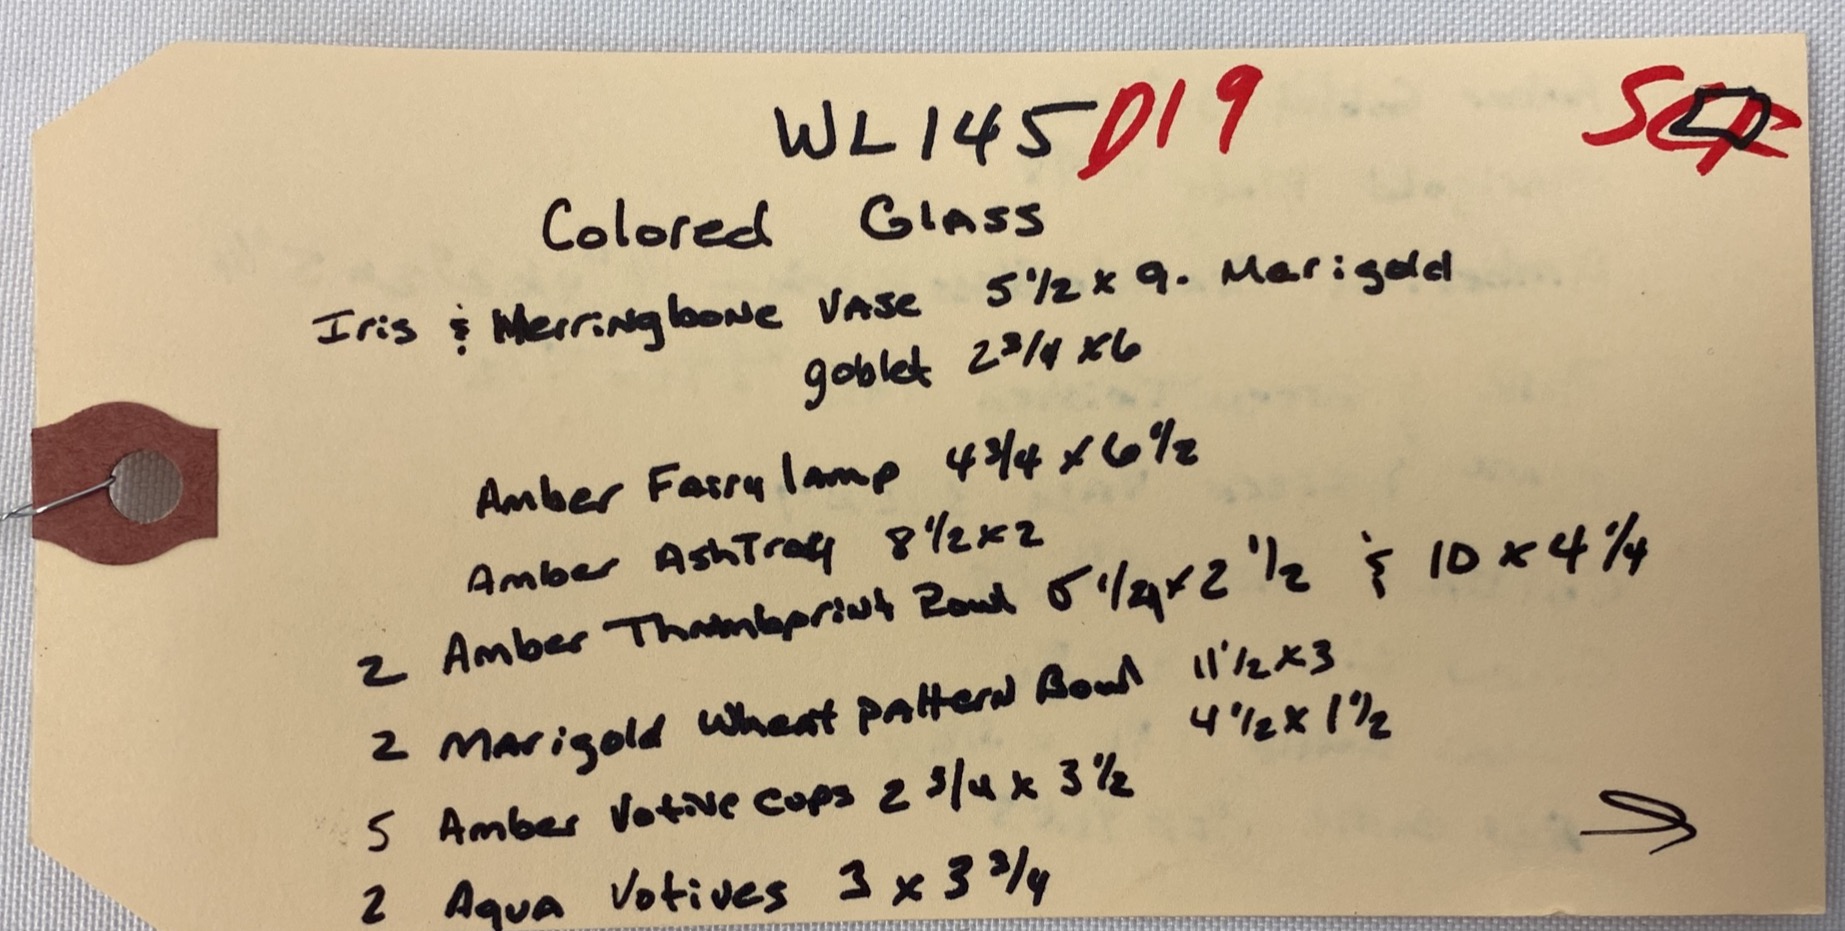 WL145 D19
Colored Glass
Iris & Herringbone Vase 5 1/2 x 9. Marigold
goblet 2 3/4 x 6
Amber Fairy lamp 4 3/4 x 6 1/2
Amber AshTray 8 1/2 x 2
2 Amber Thumbprint Bowl 5 1/2 x 2 1/2 & 10 x 4 1/4
2 Marigold Wheat pattern Bowl 11 1/2 x 3
4 1/2 x 1 1/2
5 Amber Votive cups 2 3/4 x 3 1/2
2 Aqua Votives 3 x 3 3/4